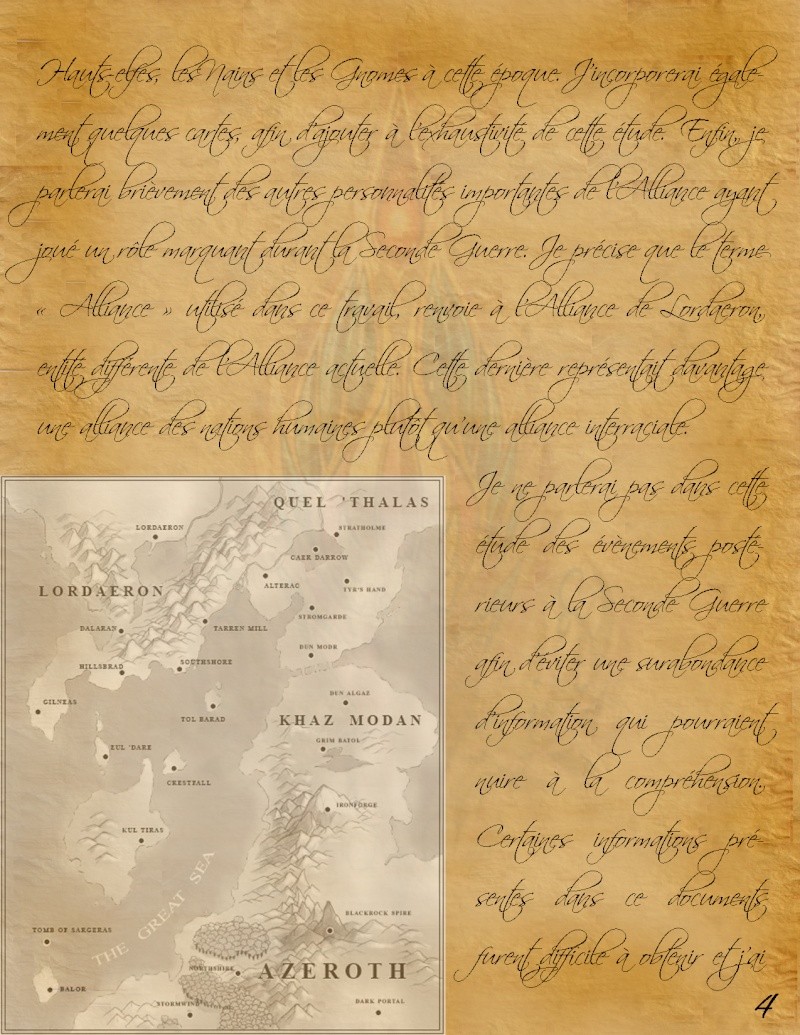 Hauts elfes, les Nains et les Gnomes à cette époque. J'incorporerai égale-
ment quelques cartes, afin d'ajouter à l'exhaustivité de cette étude. Enfin, je
parlerai brievement des autres personnalités importantes de l'Alliance ayant
joué un rôle marquant durant la Seconde Guerre. Je précise que le terme
« Alliance » utilisé dans ce travail, renvoie à l'Alliance de Lordaeron,
entité différente de l'Alliance actuelle. Cette dernière représentait davantage
une alliance des nations humaines plutôt qu'une alliance interraciale.
Je ne parlerai pas dans cette
étude des évènements posté-
rieurs à la Seconde Guerre
afin d'éviter une surabondance
d'information qui pourraient
nuire à la compréhension.
Certaines informations pré-
sentes dans ce documents
furent difficile à obtenir et j'ai
QUEL 'THALAS
LORDAERON
STRATHOLME
CAER DARROW
ALTERAC
TYR'S HAND
LORDAERON
STROMGARDE
DALARAN
TARREN MILL
DUN MODR
HILLSBRAD
SOUTHSHORE
DUN ALGAZ
GILNEAS
TOL BARAD
KHAZ MODAN
GRIM BATOL
ZUL 'DARE
CRESTFALL
IRONFORGE
KUL TIRAS
THE GREAT SEA
BLACKROCK SPIRE
TOMB OF SARGERAS
NORTHSHIRE
AZEROTH
BALOR
STORMWIND
DARK PORTAL
4